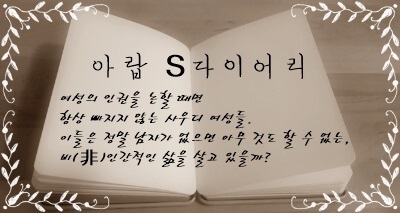 아랍 S다이어리
여성의 인권을 논할 때면
항상 빠지지 않는 사우디 여성들.
이들은 정말 남자가 없으면 아무 것도 할 수 없는,
비(非)인간적인 삶을 살고 있을까?